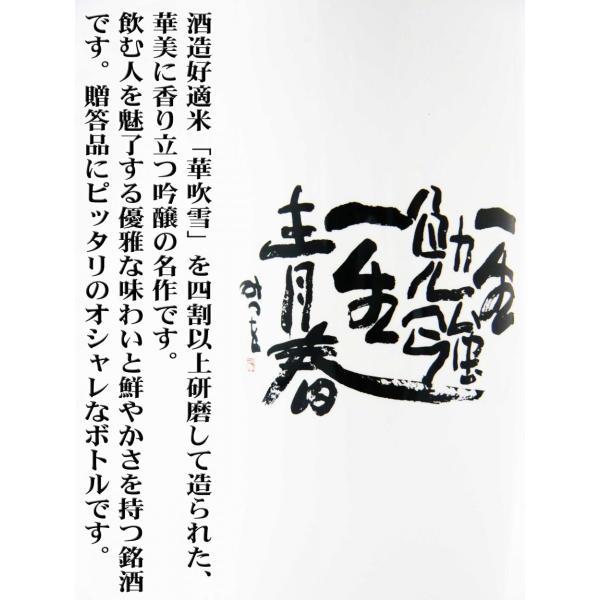 一生
勉強
一生
青春
みつを
酒造好適米「華吹雪」を四割以上研磨して造られた、
華美に香り立つ吟醸の名作です。
飲む人を魅了する優雅な味わいと鮮やかさを持つ銘酒
です。贈答品にピッタリのオシャレなボトルです。